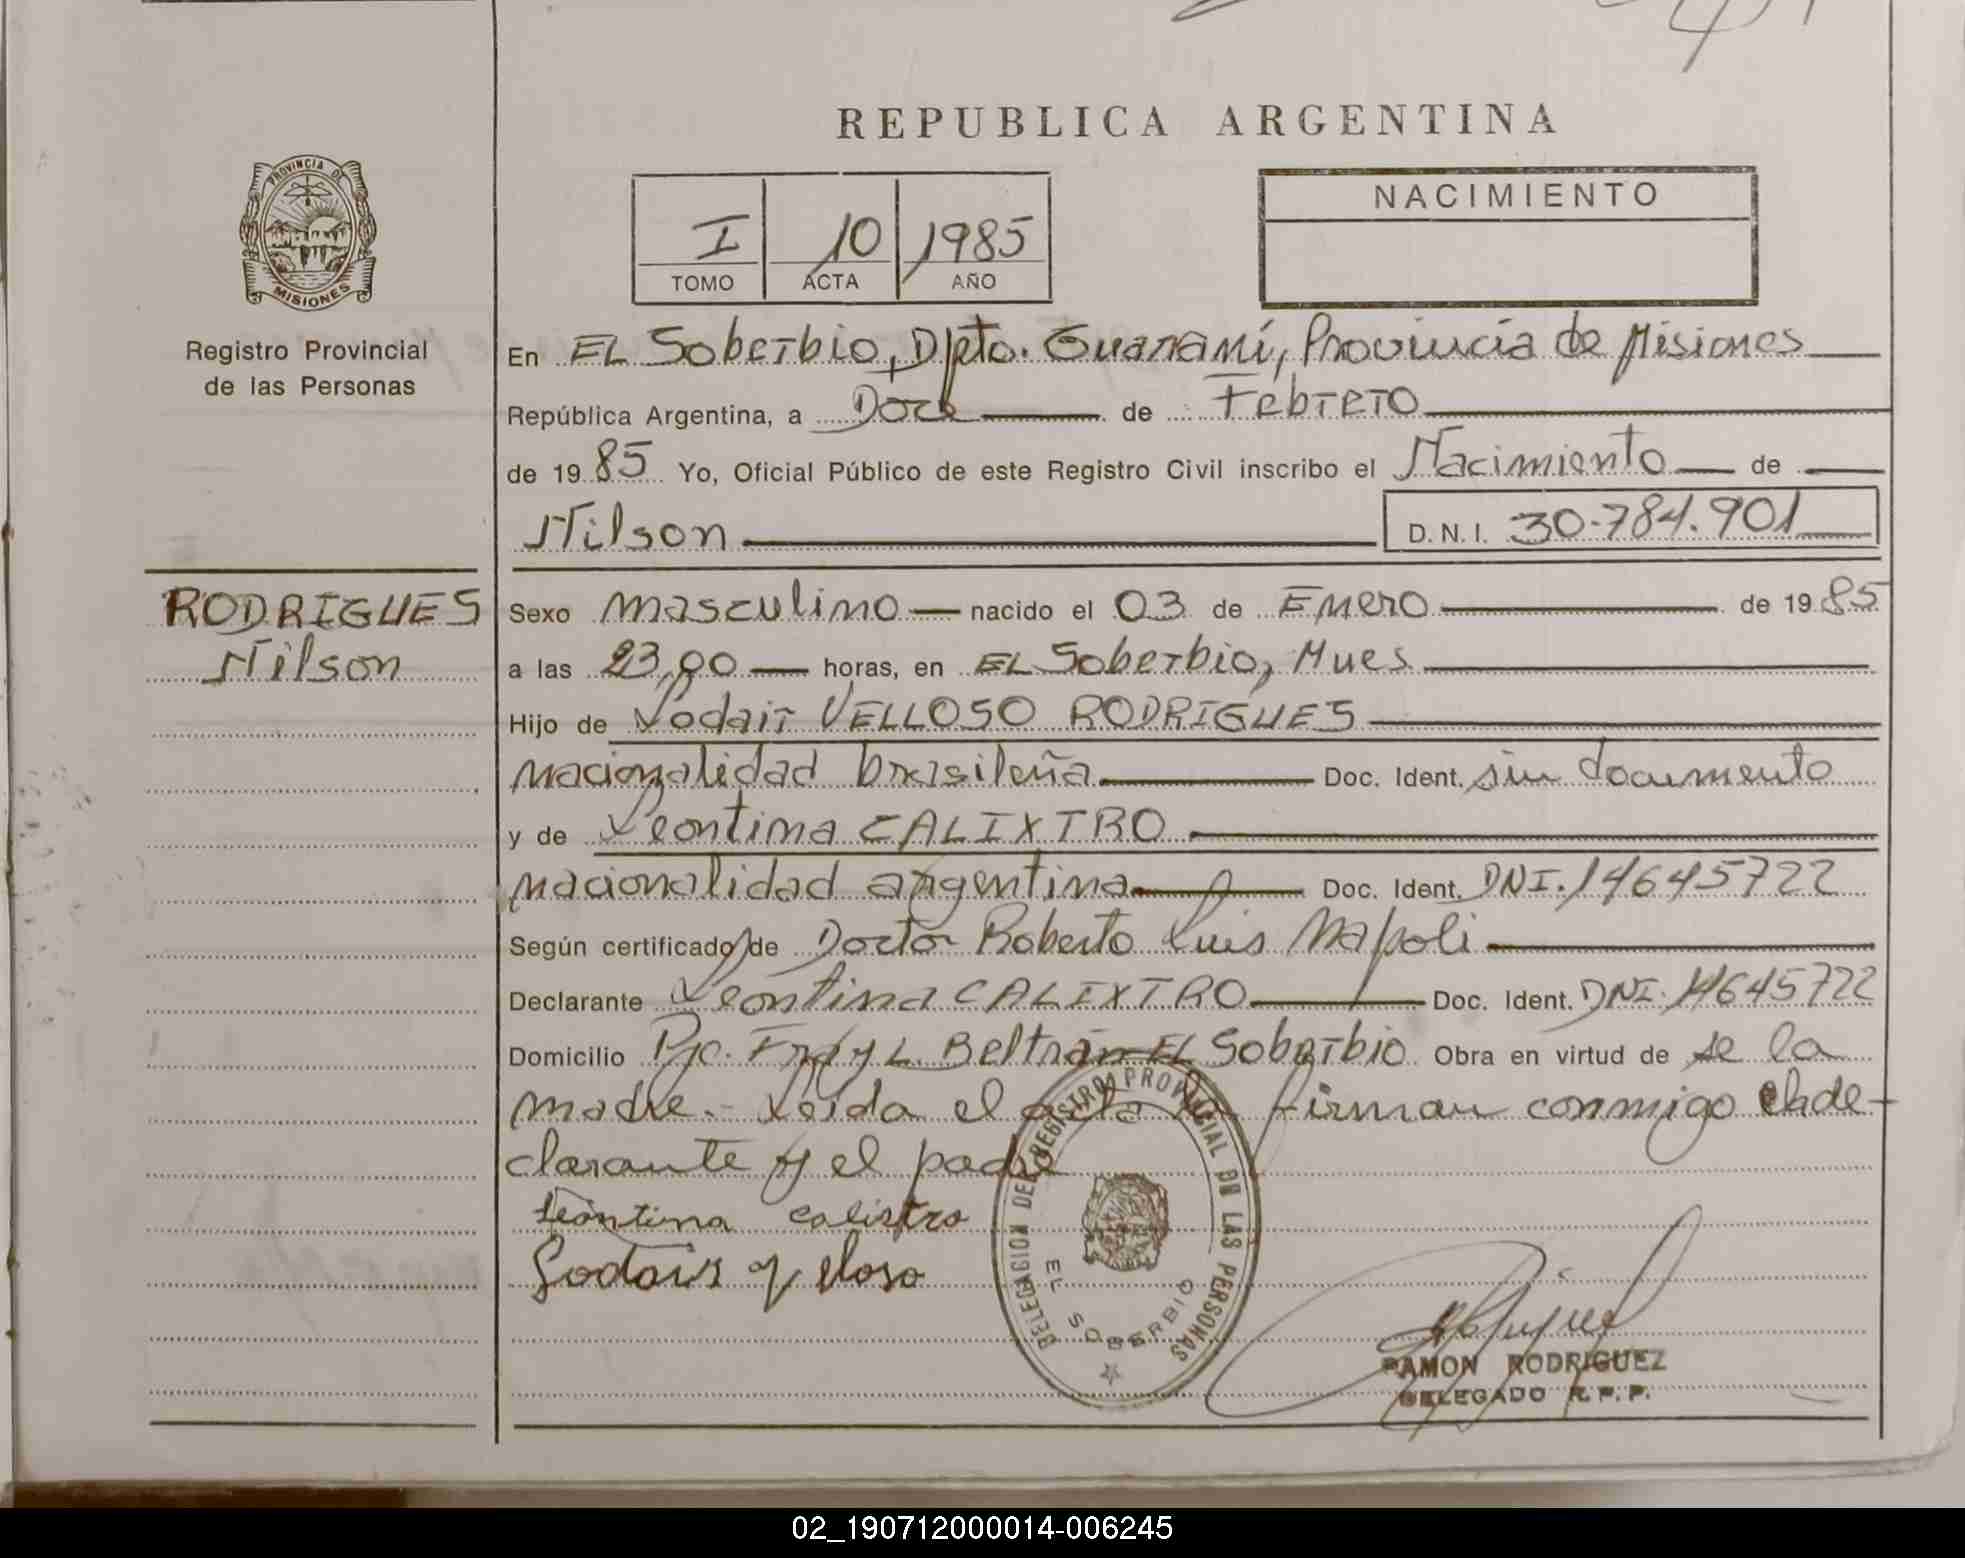 REPUBLICA ARGENTINA
PROVINCIA DE
MISIONES
Registro Provincial
de las Personas
I 10 1985
TOMO ACTA AÑO
NACIMIENTO
En EL Soberbio, Dpto. Guaraní, Provincia de Misiones
República Argentina, a Doce de Febrero
de 19 85 Yo, Oficial Público de este Registro Civil inscribo el Nacimiento de
Nilson D.N.I. 30.784.901
RODRIGUES
Nilson
Sexo masculino nacido el 03 de Enero de 19 85
a las 23,00 horas, en EL Soberbio, Mnes
Hijo de Lodair VELLOSO RODRIGUES
nacionalidad brasileña Doc. Ident. sin documento
y de Leontina CALIXTRO
nacionalidad argentina Doc. Ident. DNI. 14645722
Según certificado de Doctor Roberto Luis Napoli
Declarante Leontina CALIXTRO Doc. Ident. DNI. 14645722
Domicilio Pje. Fray L. Beltrán EL Soberbio Obra en virtud de se la
madre.- Leída el acta la firman conmigo el de-
clarante y el padre
Leontina calistro
DELEGACION DEL REGISTRO PROVINCIAL DE LAS PERSONAS
EL SOBERBIO
RAMON RODRIGUEZ
DELEGADO R.P.P.
02_190712000014-006245